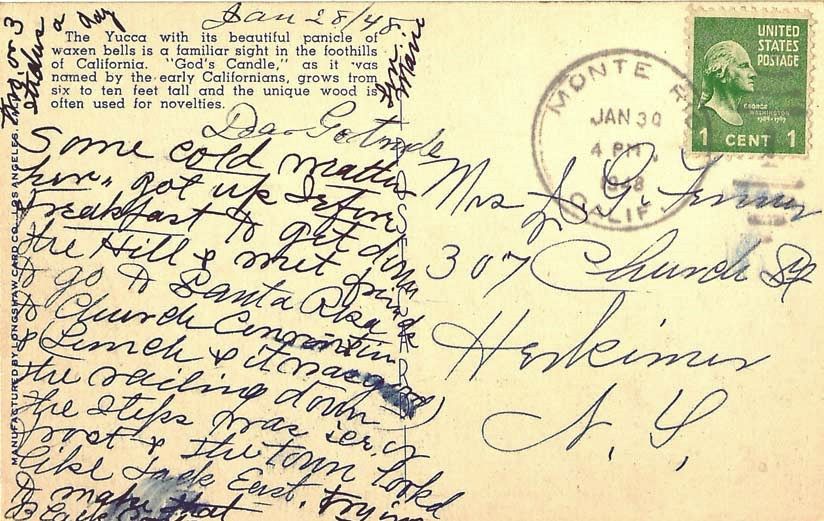 Jan 28/48
The Yucca with its beautiful panicle of
waxen bells is a familiar sight in the foothills
of California. "God's Candle," as it was
named by the early Californians, grows from
six to ten feet tall and the unique wood is
often used for novelties.
Dear Gertrude
Some cold
here, got up before
breakfast to get down
the Hill & met
to go to Santa Rosa
to Church Convention
& Lunch & it was good
the railing down
the steps was icy
frost & the town looked
like back East, trying
to make that
or 3
a day
MANUFACTURED BY LONGSHAW CARD CO., LOS ANGELES,
MONTE R
JAN 30
4 PM
1948
CALIF.
UNITED
STATES
POSTAGE
GEORGE
WASHINGTON
1789-1797
1 CENT 1
Mrs L. G.
307 Church St
Herkimer
N. Y.